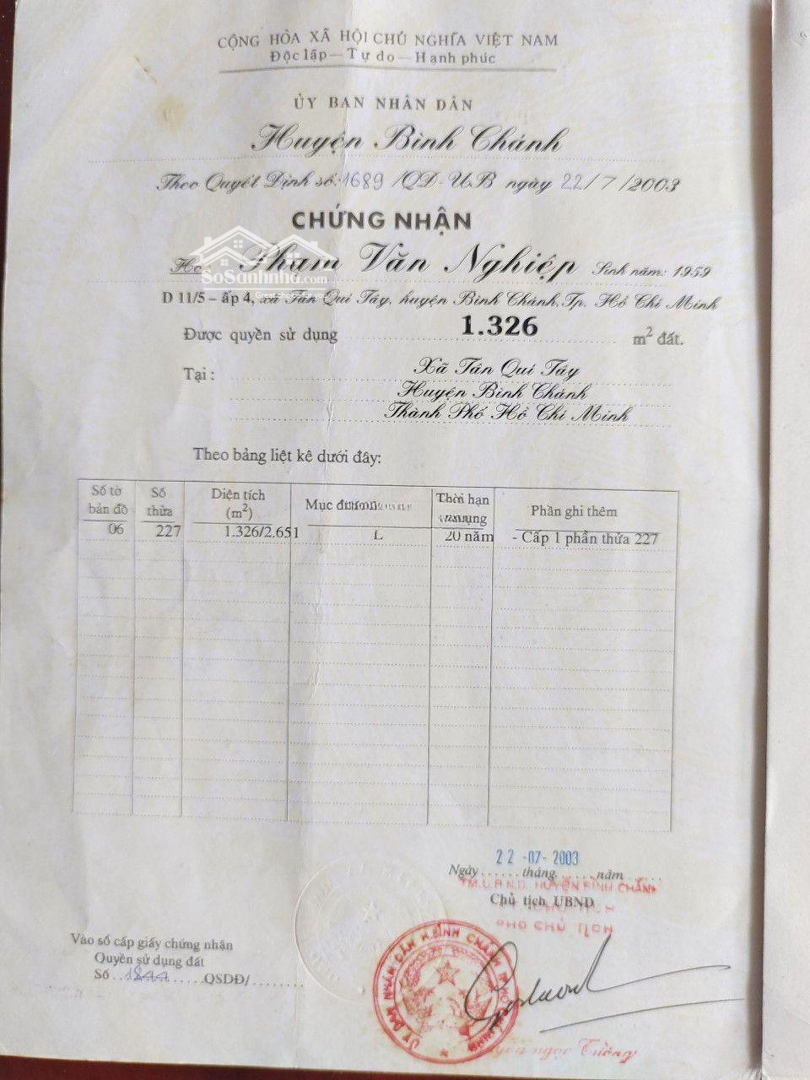 CỘNG HÒA XÃ HỘI CHỦ NGHĨA VIỆT NAM
Độc lập — Tự do — Hạnh phúc
ỦY BAN NHÂN DÂN
Huyện Bình Chánh
Theo Quyết Định số: 1689 /QĐ-UB ngày 22/7/2003
CHỨNG NHẬN
Phạm Văn Nghiệp Sinh năm: 1959
SoSanhnha.com
D 11/5 – ấp 4, xã Tân Quí Tây, huyện Bình Chánh, Tp. Hồ Chí Minh
Được quyền sử dụng 1.326 m² đất.
Tại : Xã Tân Quí Tây
Huyện Bình Chánh
Thành Phố Hồ Chí Minh
Theo bảng liệt kê dưới đây:
Số tờ bản đồ Số thửa Diện tích (m²) Mục Thời hạn Phần ghi thêm
06 227 1.326/2.651 L 20 năm - Cấp 1 phần thửa 227
22 -07- 2003
Ngày ...... tháng ...... năm ......
TM.U.B.N.D. HUYỆN BÌNH CHÁNH
Chủ tịch UBND
PHÓ CHỦ TỊCH
Vào sổ cấp giấy chứng nhận
Quyền sử dụng đất
Số ..1844.. QSDĐ/........
ỦY BAN NHÂN DÂN H.BÌNH CHÁNH
Ngọc Tường